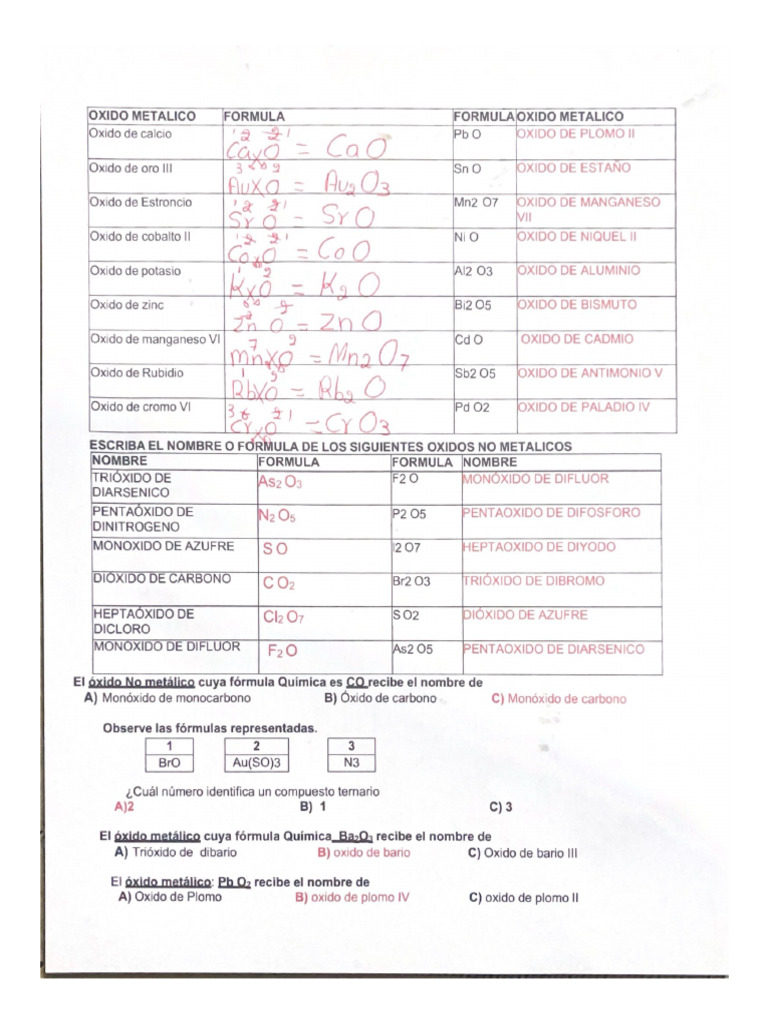 OXIDO METALICO FORMULA FORMULA OXIDO METALICO
Oxido de calcio CaXO = CaO Pb O OXIDO DE PLOMO II
Oxido de oro III AuXO = Au2O3 Sn O OXIDO DE ESTAÑO
Oxido de Estroncio Sr O = SrO Mn2 O7 OXIDO DE MANGANESO
VII
Oxido de cobalto II CoxO = CoO Ni O OXIDO DE NIQUEL II
Oxido de potasio KxO = K2O Al2 O3 OXIDO DE ALUMINIO
Oxido de zinc Zn O = ZnO Bi2 O5 OXIDO DE BISMUTO
Oxido de manganeso VI mnXO = Mn2O7 Cd O OXIDO DE CADMIO
Oxido de Rubidio RbXO = Rb2O Sb2 O5 OXIDO DE ANTIMONIO V
Oxido de cromo VI CrxO = CrO3 Pd O2 OXIDO DE PALADIO IV
ESCRIBA EL NOMBRE O FORMULA DE LOS SIGUIENTES OXIDOS NO METALICOS
NOMBRE FORMULA FORMULA NOMBRE
TRIÓXIDO DE As2 O3 F2 O MONÓXIDO DE DIFLUOR
DIARSENICO
PENTAÓXIDO DE N2 O5 P2 O5 PENTAOXIDO DE DIFOSFORO
DINITROGENO
MONOXIDO DE AZUFRE S O I2 O7 HEPTAOXIDO DE DIYODO
DIÓXIDO DE CARBONO C O2 Br2 O3 TRIÓXIDO DE DIBROMO
HEPTAÓXIDO DE Cl2 O7 S O2 DIÓXIDO DE AZUFRE
DICLORO
MONOXIDO DE DIFLUOR F2 O As2 O5 PENTAOXIDO DE DIARSENICO
El óxido No metálico cuya fórmula Química es CO recibe el nombre de
A) Monóxido de monocarbono B) Óxido de carbono C) Monóxido de carbono
Observe las fórmulas representadas.
1 2 3
BrO Au(SO)3 N3
¿Cuál número identifica un compuesto ternario
A)2 B) 1 C) 3
El óxido metálico cuya fórmula Química Ba2O3 recibe el nombre de
A) Trióxido de dibario B) oxido de bario C) Oxido de bario III
El óxido metálico: Pb O2 recibe el nombre de
A) Oxido de Plomo B) oxido de plomo IV C) oxido de plomo II